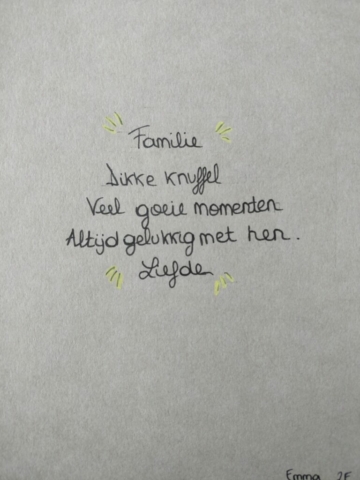 Familie
Dikke knuffel
Veel goeie momenten
Altijd gelukkig met hen.
Liefde
Emma 2F